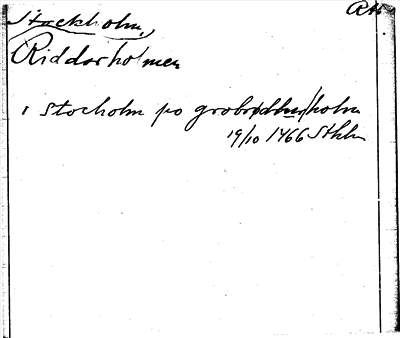 Stockholm, RAp
Riddarholmen
i stocholm po grobrødhus/holm
19/10 1466 Sthlm